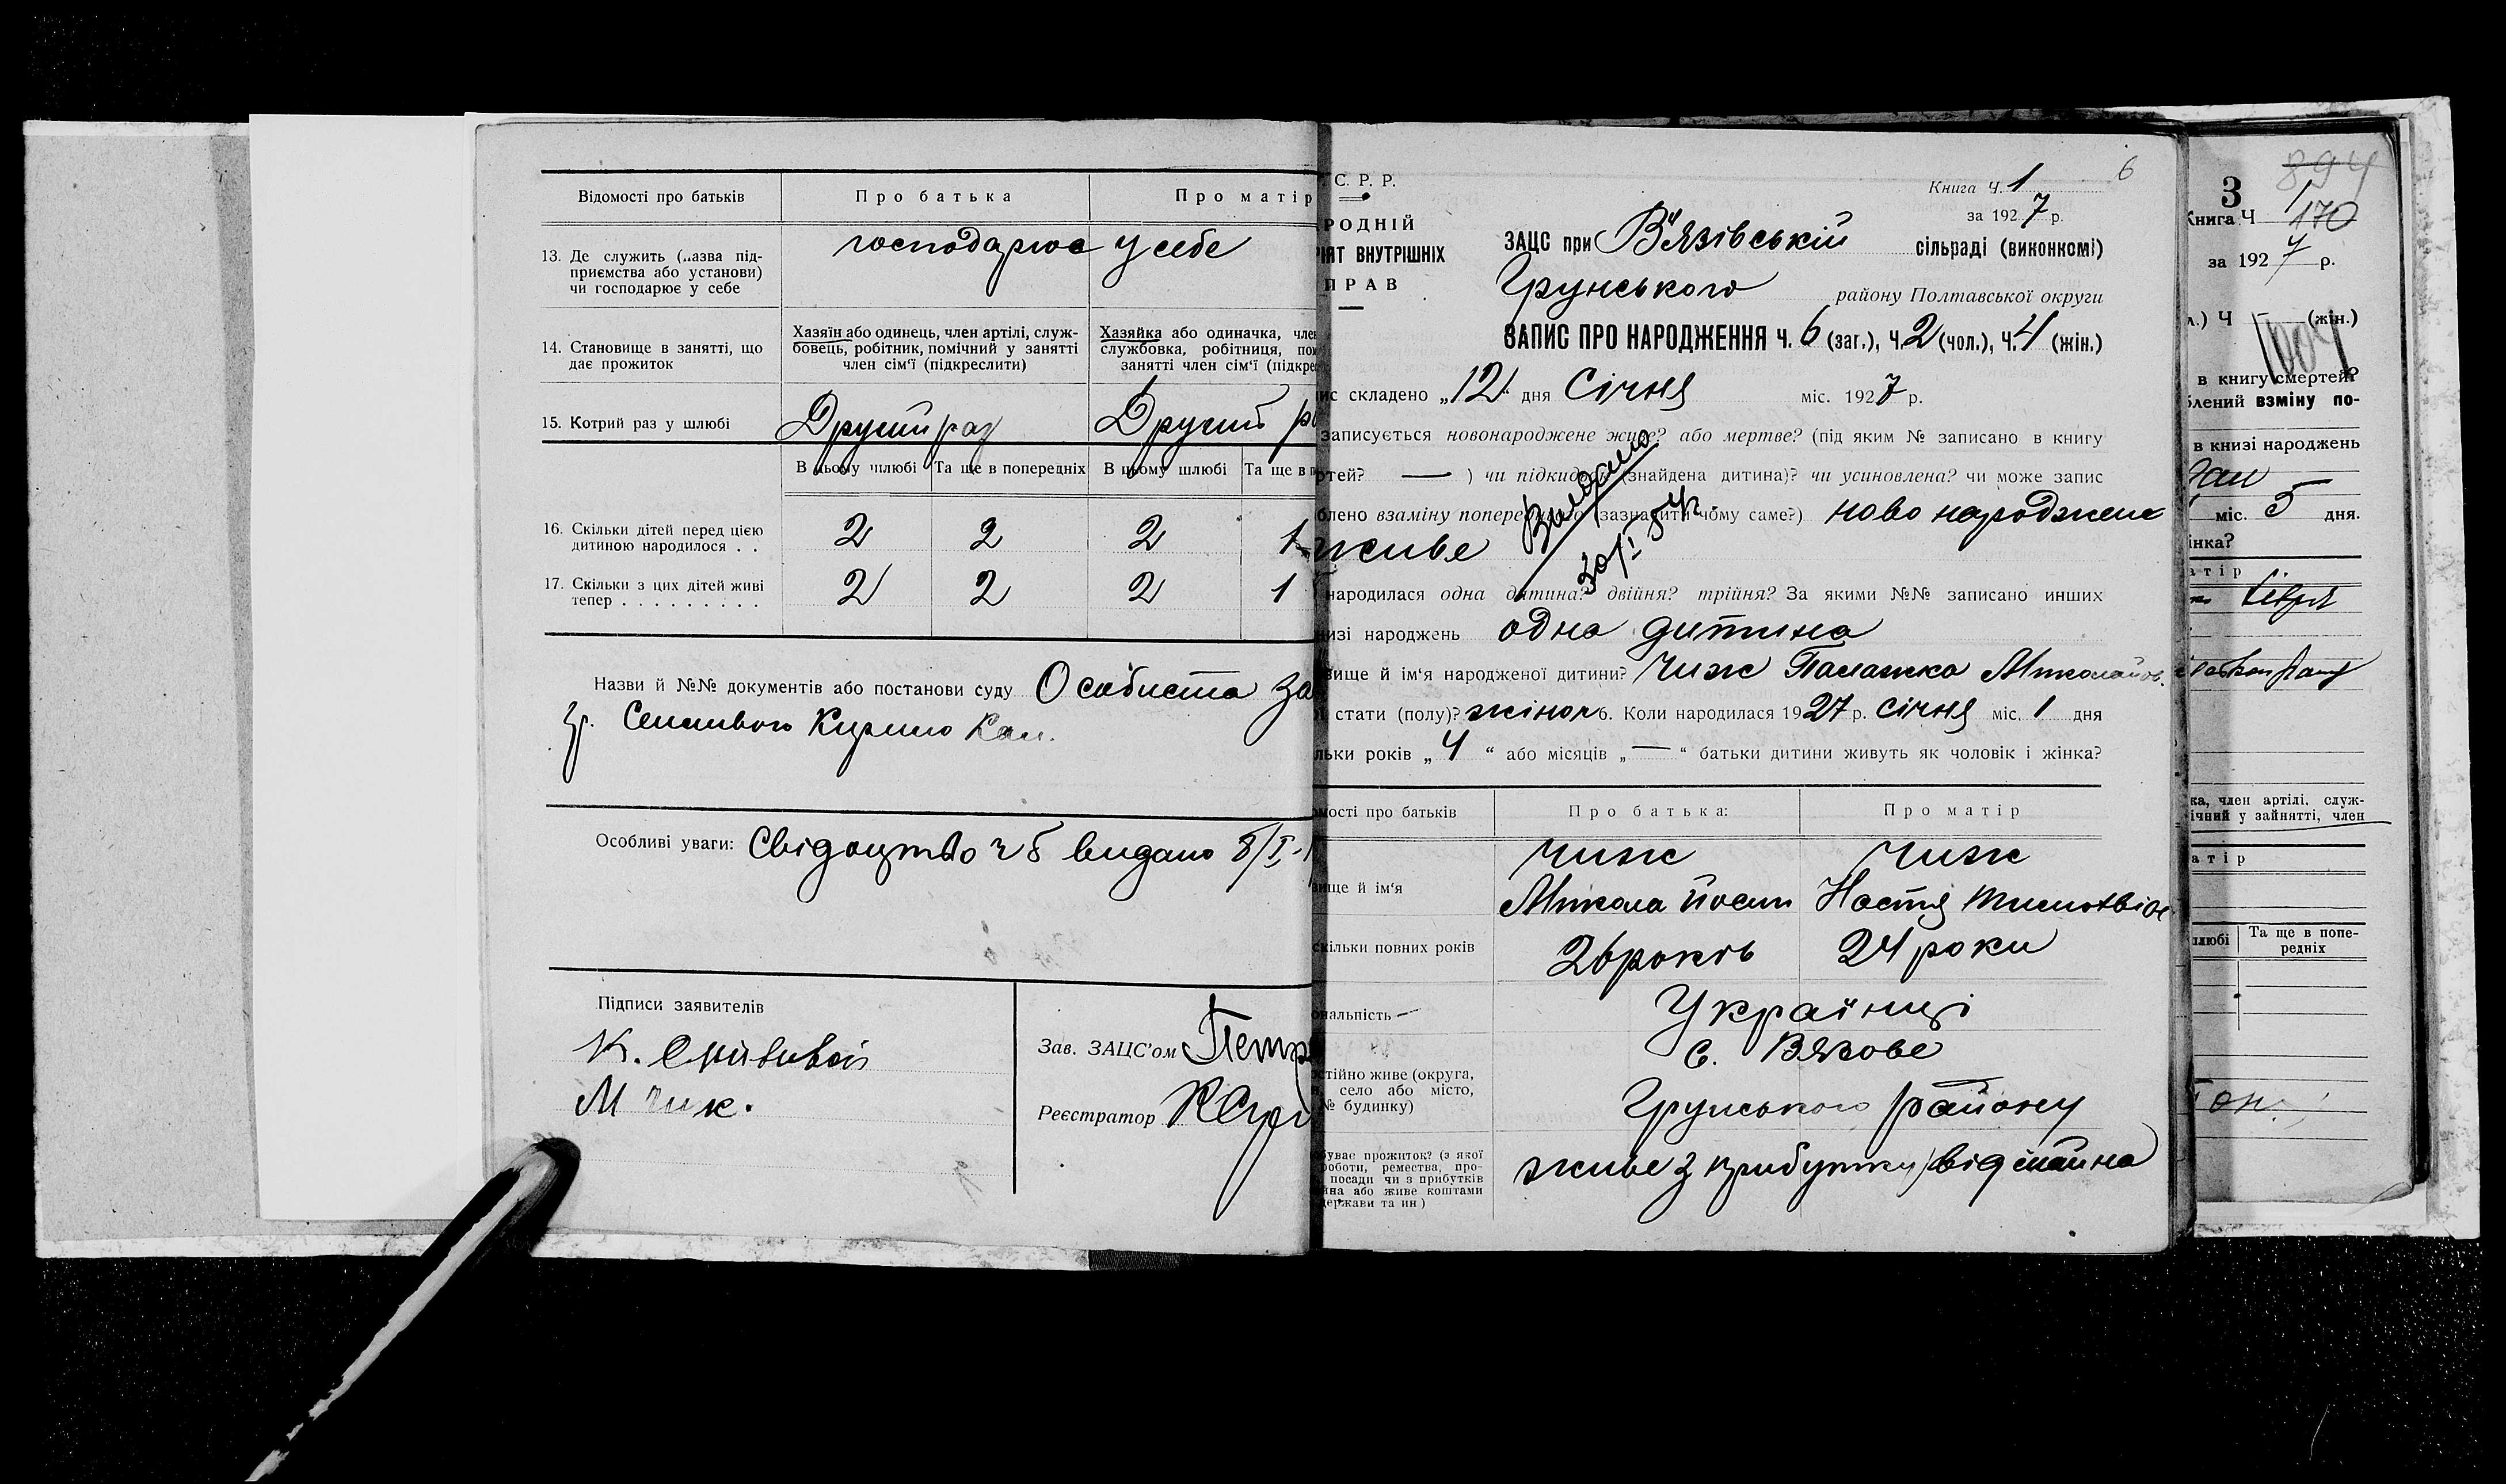 Відомості про батьків
Про батька
Про матір
13. Де служить (назва під-
приємства або установи)
чи господарює у себе
господарює у себе
14. Становище в занятті, що
дає прожиток
Хазяїн або одинець, член артілі, служ-
бовець, робітник, помічний у занятті
член сім'ї (підкреслити)
Хазяйка або одиначка, член
службовка, робітниця, пом
занятті член сім'ї (підкре
15. Котрий раз у шлюбі
Другий раз
Другий ра
В цьому шлюбі
Та ще в попередніх
В цьому шлюбі
Та ще в п
16. Скільки дітей перед цією
дитиною народилося . .
2 2 2 1
17. Скільки з цих дітей живі
тепер . . . . . . . . .
2 2 2 1
Назви й №№ документів або постанови суду Особиста за
гр. Кирило
Особливі уваги: Свідоцтво ч 5 видано 8/I-
Підписи заявителів
К.
М Чиж.
Зав. ЗАЦС'ом Петр
Реєстратор
6
С. Р. Р.
РОДНІЙ
РІЯТ ВНУТРІШНІХ
ПРАВ
Книга Ч. 1
за 1927 р.
ЗАЦС при В'язівській сільраді (виконкомі)
Грунського району Полтавської округи
ЗАПИС ПРО НАРОДЖЕННЯ Ч. 6 (заг.), Ч. 2 (чол.), Ч. 4 (жін.)
ис складено „12" дня Січня міс. 1927 р.
записується новонароджене живе? або мертве? (під яким № записано в книгу
ртей? — ) чи підкидьок (знайдена дитина)? чи усиновлена? чи може запис
блено взаміну попереднього (зазначити чому саме?) ново народжене
живе
Видано
30/I 54 р.
народилася одна дитина? двійня? трійня? За якими №№ записано инших
низі народжень одна дитина
вище й ім'я народженої дитини? Чиж Палажка Миколаїв.
стати (полу)? жіноч 6. Коли народилася 1927 р. січня міс. 1 дня
льки років „4" або місяців „—" батьки дитини живуть як чоловік і жінка?
омості про батьків
Про батька:
Про матір
вище й ім'я
Чиж
Микола Йосип
Чиж
Настя
скільки повних років
26 років
24 роки
ональність —
Українці
стійно живе (округа,
село або місто,
№ будинку)
с. Вязове
Грунського району
буває прожиток? (з якої
роботи, ремества, про-
посади чи з прибутків
йна або живе коштами
держави та ин)
живе з прибутку від майна
894
3
Книга Ч 1
170
за 1927 р.
л.) Ч — (жін.)
1004
в книгу смертей?
блений взміну по-
в книзі народжень
міс. 5 дня.
інка?
атір
ка, член артілі, служ-
ічний у зайнятті, член
атір
шлюбі
Та ще в попе-
редніх